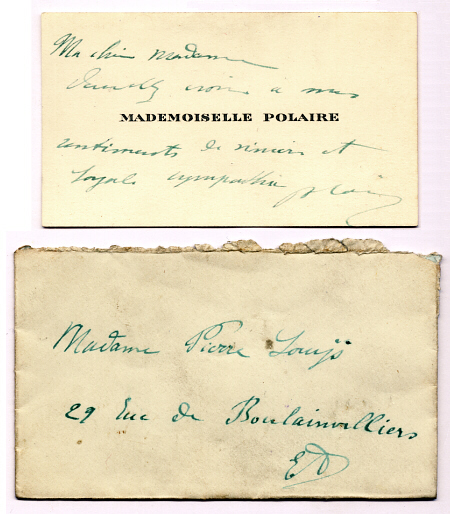 Ma chère madame
Veuillez croire à mes
MADEMOISELLE POLAIRE
sentiments de sincère et
loyale sympathie
Polaire
Madame Pierre Louÿs
29 Rue de Boulainvilliers